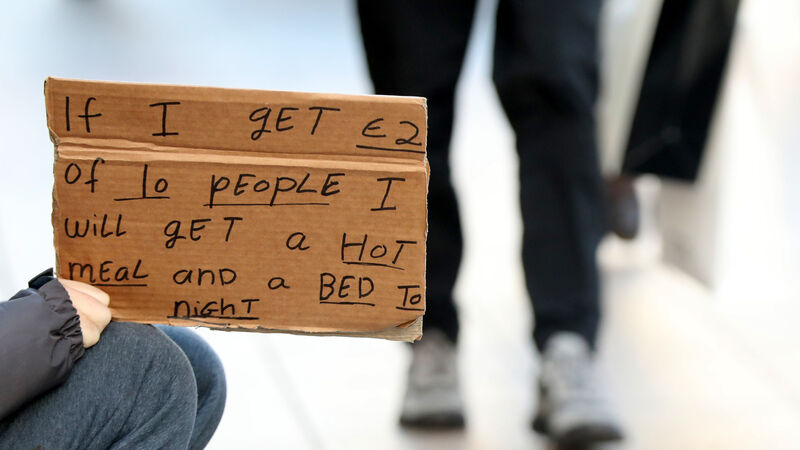 If I gET €2
Of 10 pEOpLE I
will gET a HOT
mEaL and a BED To
nighT